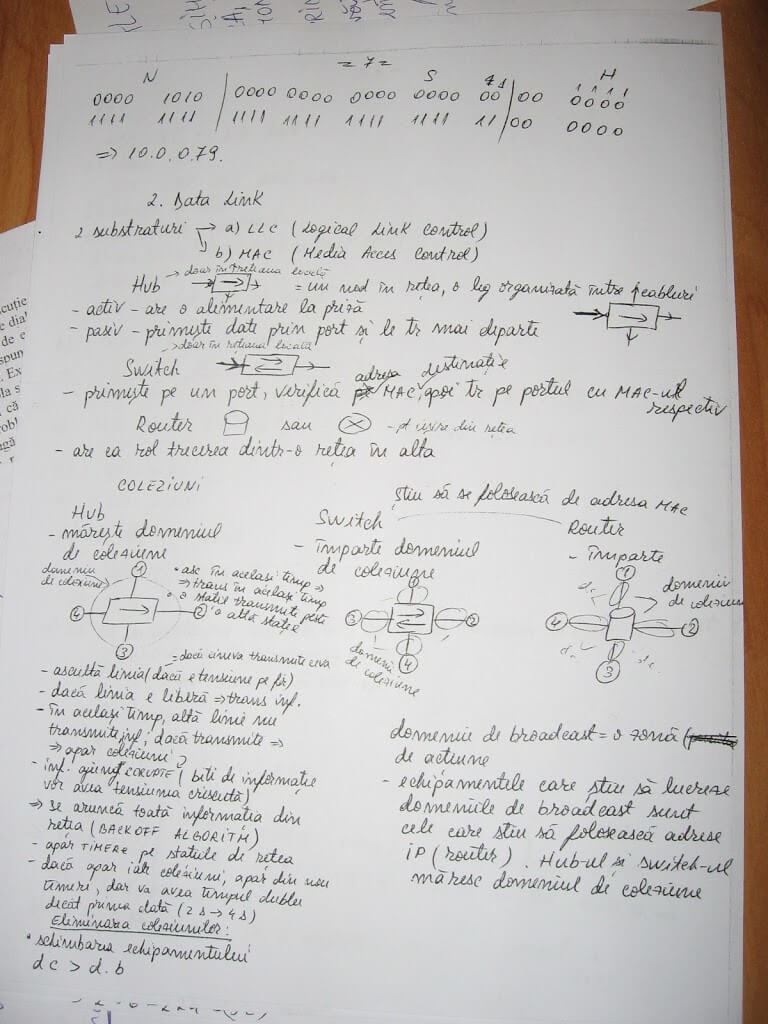 = 7 =
N S 4 1 H
1 1 1 1
0000 1010 | 0000 0000 0000 0000 00 | 00 0000
1111 1111 | 1111 1111 1111 1111 11 | 00 0000
=> 10.0.0.79.
2. Data Link
2 substraturi → a) LLC (Logical Link Control)
b) MAC (Media Acces Control)
→ doar în rețeaua locală
Hub → = un nod în rețea, o leg organizată între
- activ - are o alimentare la priză
- pasiv - primește date prin port și le tr mai departe
→ doar în rețeaua locală
Switch
adresa destinație
- primește pe un port, verifică MAC, apoi tr pe portul cu MAC-ul
respectiv
Router sau - pt ieșire din rețea
- are ca rol trecerea dintr-o rețea în alta
COLEZIUNI
știu să se folosească de adresa MAC
Hub
- mărește domeniul
de coleziune
domeniu
de coleziune
1
2
3
4
• asc în același timp =>
=> trans în același timp
• o stație transmite peste
o altă stație
= dacă cineva transmite ceva
- ascultă linia (dacă e tensiune pe fir)
- dacă linia e liberă => trans inf.
- în același timp, altă linie nu
transmite inf; dacă transmite =>
=> apar coleziuni
- inf. ajung CORUPTE (biti de informație
vor avea tensiunea crescută)
=> Se aruncă toată informatia din
retea (BACKOFF ALGORITM)
- apar TIMERe pe statiile de retea
- dacă apar iar coleziuni, apar din nou
timeri, dar va avea timpul dublu
decât prima dată (2s → 4s)
Eliminarea coleziunilor:
• schimbarea echipamentului
dc > d.b
Switch
- împarte domeniul
de coleziune
1
2
3
4
domenii
de coleziune
Router
- împarte
1
2
3
4
d.c
d.c
d.c
domenii
de coleziune
domeniu de broadcast = o zonă
de actiune
- echipamentele care știu să lucreze
domeniile de broadcast sunt
cele care știu să folosească adrese
iP (router). Hub-ul și switch-ul
măresc domeniul de coleziune